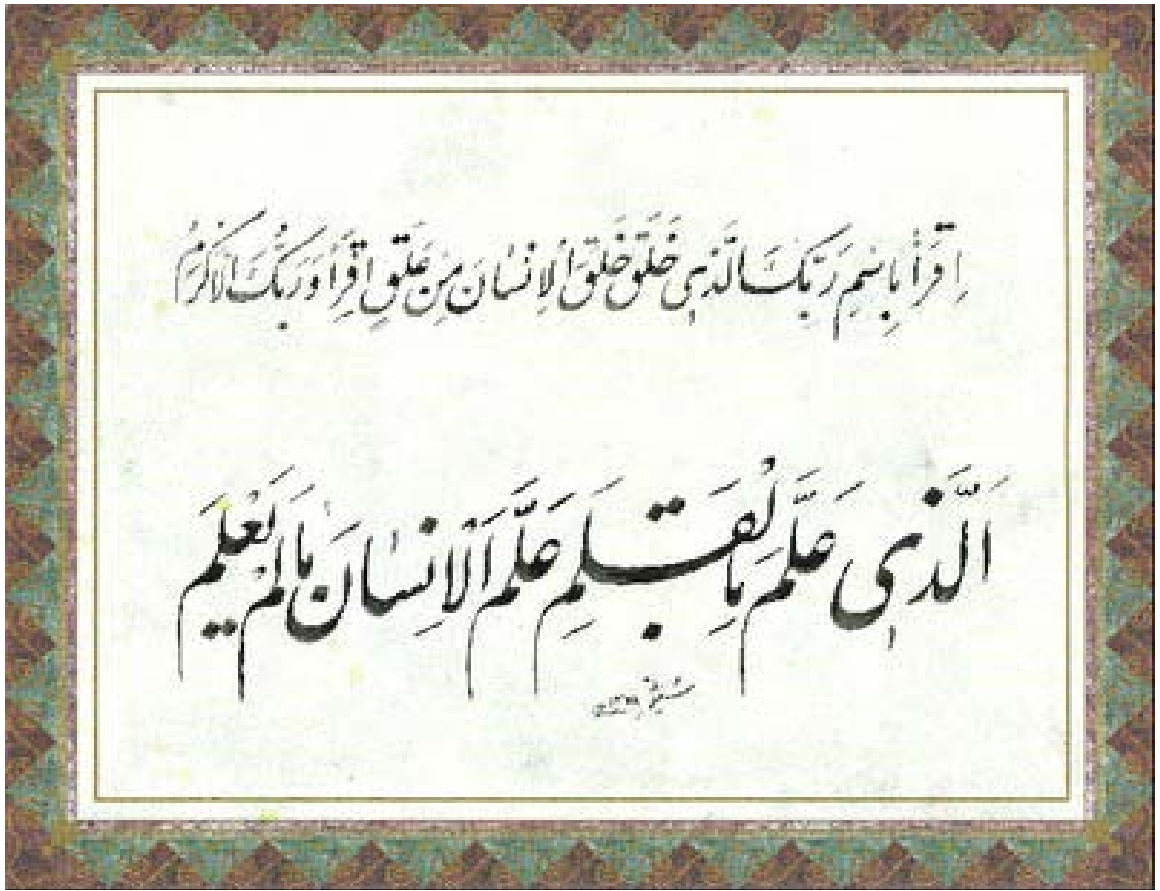 اِقرَأْ بِاسْمِ رَبِّكَ الَّذِی خَلَقَ خَلَقَ الْاِنْسٰانَ مِنْ عَلَقٍ اِقْرَأْ وَرَبُّكَ الْاَكْرَمُ
اَلَّذِی عَلَّمَ بِالْقَلَمِ عَلَّمَ الْاِنْسٰانَ مٰا لَمْ یَعْلَمْ